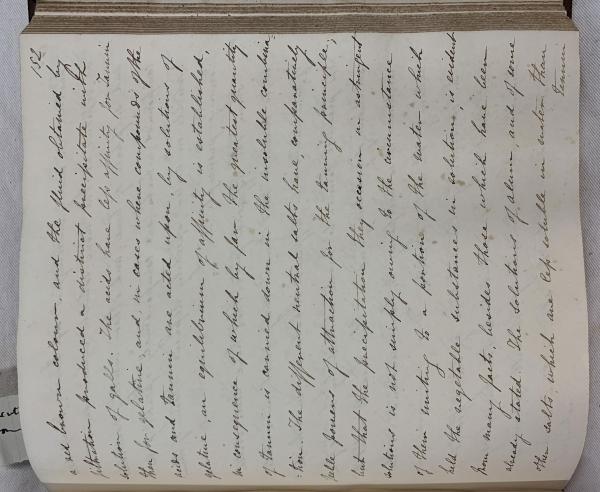 152
a red brown colour, and the fluid obtained by
filtration produced a distinct precipitate with
solution of galls. The acids have less affinity for tannin
than for gelatine; and in cases where compounds of the
acids and tannin are acted upon by solutions of
gelatine, an equilibrium of affinity is established,
in consequence of which by far the greatest quantity
of tannin is carried down in the insoluble combina
tion. The different neutral salts have, comparatively
feeble powers of attraction for the tanning principle;
but that the precipitation they occasion in astringent
solutions is not simply owing to the circumstance
of their uniting to a portion of the water which
held the vegetable substances in solution is evident
from many facts, besides those which have been
already stated. The solutions of alum, and of some
other salts which are less soluble in water than
tannin